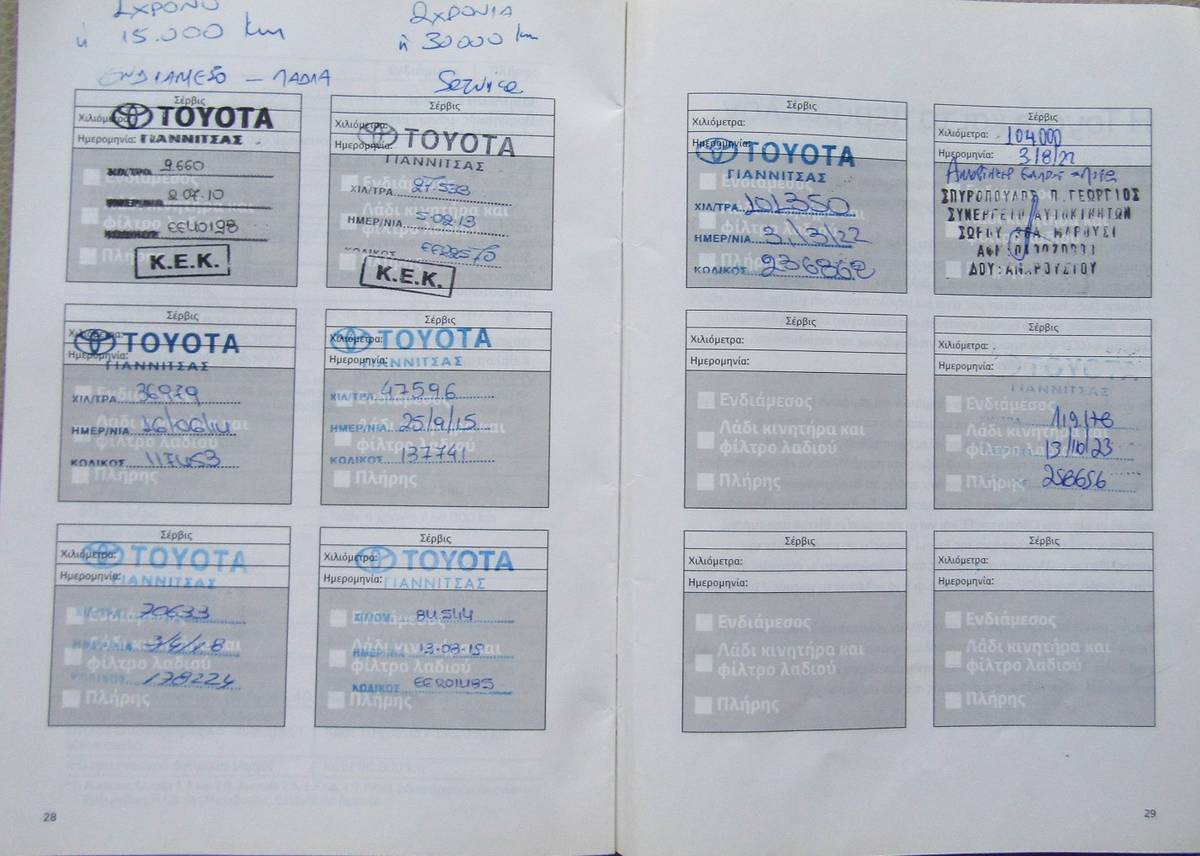 1ΧΡΟΝΟ
ή 15.000 km
2ΧΡΟΝΙΑ
ή 30000 km
ΕΝΔΙΑΜΕΣΟ - ΛΑΔΙΑ
Service
Σέρβις
Χιλιόμετρα:
TOYOTA
Ημερομηνία:
ΓΙΑΝΝΙΤΣΑΣ
ΧΙΛ/ΤΡΑ 9660
ΗΜΕΡ/ΝΙΑ 2 07.10
ΚΩΔΙΚΟΣ ΕΕ40198
Κ.Ε.Κ.
Σέρβις
Χιλιόμετρα:
TOYOTA
Ημερομηνία:
ΓΙΑΝΝΙΤΣΑΣ
ΧΙΛ/ΤΡΑ 27.538
Λάδι κινητήρα και
ΗΜΕΡ/ΝΙΑ
φίλτρο λαδιού
ΚΩΔΙΚΟΣ
Κ.Ε.Κ.
Σέρβις
TOYOTA
Ημερομηνία:
ΓΙΑΝΝΙΤΣΑΣ
ΧΙΛ/ΤΡΑ 36979
ΗΜΕΡ/ΝΙΑ 16/06/14
ΚΩΔΙΚΟΣ
Πλήρης
Σέρβις
Χιλιόμετρα:
TOYOTA
Ημερομηνία:
ΓΙΑΝΝΙΤΣΑΣ
ΧΙΛ/ΤΡΑ 47596
Λάδι κινητήρα και
ΗΜΕΡ/ΝΙΑ 25/9/15
φίλτρο λαδιού
ΚΩΔΙΚΟΣ 137741
Πλήρης
Σέρβις
Χιλιόμετρα:
TOYOTA
Ημερομηνία:
ΓΙΑΝΝΙΤΣΑΣ
70633
ΗΜΕΡ/ΝΙΑ 3/4/18
φίλτρο λαδιού
ΚΩΔΙΚΟΣ 178224
Πλήρης
Σέρβις
Χιλιόμετρα:
TOYOTA
Ημερομηνία:
ΓΙΑΝΝΙΤΣΑΣ
84.544
Λάδι κινητήρα και
ΗΜΕΡ/ΝΙΑ
φίλτρο λαδιού
ΚΩΔΙΚΟΣ
Πλήρης
28
Σέρβις
Χιλιόμετρα:
Ημερομηνία:
TOYOTA
ΓΙΑΝΝΙΤΣΑΣ
Ενδιάμεσος
ΧΙΛ/ΤΡΑ 101350
ΗΜΕΡ/ΝΙΑ 31/3/22
ΚΩΔΙΚΟΣ 236862
Σέρβις
Χιλιόμετρα: 104000
Ημερομηνία: 3/8/22
ΣΠΥΡΟΠΟΥΛΟΣ Π. ΓΕΩΡΓΙΟΣ
ΣΥΝΕΡΓΕΙΟ ΑΥΤΟΚΙΝΗΤΩΝ
ΜΑΡΟΥΣΙ
ΑΦΜ
ΔΟΥ: ΑΜΑΡΟΥΣΙΟΥ
Σέρβις
Χιλιόμετρα:
Ημερομηνία:
Ενδιάμεσος
Λάδι κινητήρα και
φίλτρο λαδιού
Πλήρης
Σέρβις
Χιλιόμετρα:
Ημερομηνία:
ΓΙΑΝΝΙΤΣΑΣ
Ενδιάμεσος
119178
Λάδι κινητήρα και
φίλτρο λαδιού
13/10/23
Πλήρης
258656
Σέρβις
Χιλιόμετρα:
Ημερομηνία:
Ενδιάμεσος
Λάδι κινητήρα και
φίλτρο λαδιού
Πλήρης
Σέρβις
Χιλιόμετρα:
Ημερομηνία:
Ενδιάμεσος
Λάδι κινητήρα και
φίλτρο λαδιού
Πλήρης
29